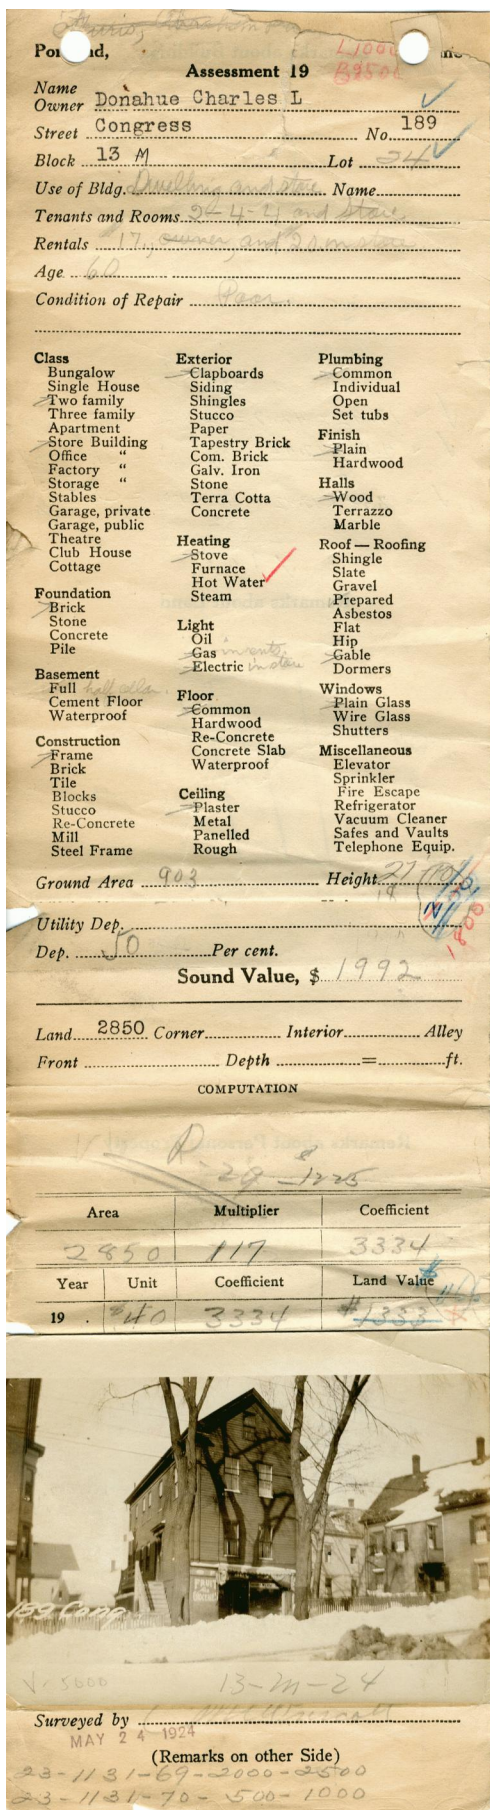 Assessment 19
L1000
B2500
Name
Owner Donahue Charles L
Street Congress No. 189
Block 13 M Lot 24
Use of Bldg. Dwelling and store Name
Tenants and Rooms 2-4-4 and Store
Rentals 17, owner, and 20 m store
Age 60
Condition of Repair Poor.
Class
Bungalow
Single House
Two family
Three family
Apartment
Store Building
Office "
Factory "
Storage "
Stables
Garage, private
Garage, public
Theatre
Club House
Cottage
Foundation
Brick
Stone
Concrete
Pile
Basement
Full half cellar.
Cement Floor
Waterproof
Construction
Frame
Brick
Tile
Blocks
Stucco
Re-Concrete
Mill
Steel Frame
Exterior
Clapboards
Siding
Shingles
Stucco
Paper
Tapestry Brick
Com. Brick
Galv. Iron
Stone
Terra Cotta
Concrete
Heating
Stove
Furnace
Hot Water
Steam
Light
Oil
Gas in ents.
Electric in store
Floor
Common
Hardwood
Re-Concrete
Concrete Slab
Waterproof
Ceiling
Plaster
Metal
Panelled
Rough
Plumbing
Common
Individual
Open
Set tubs
Finish
Plain
Hardwood
Halls
Wood
Terrazzo
Marble
Roof — Roofing
Shingle
Slate
Gravel
Prepared
Asbestos
Flat
Hip
Gable
Dormers
Windows
Plain Glass
Wire Glass
Shutters
Miscellaneous
Elevator
Sprinkler
Fire Escape
Refrigerator
Vacuum Cleaner
Safes and Vaults
Telephone Equip.
Ground Area 903 Height 27
18
1800
Utility Dep.
Dep. 50 Per cent.
Sound Value, $ 1992
Land 2850 Corner Interior Alley
Front Depth = ft.
COMPUTATION
Area Multiplier Coefficient
2850 117 3334
Year Unit Coefficient Land Value
19 . $40 3334 $1333
189 Cong
V-5000 13-M-24
Surveyed by
MAY 24 1924
(Remarks on other Side)
23-1131-69-2000-2500
23-1131-70-500-1000